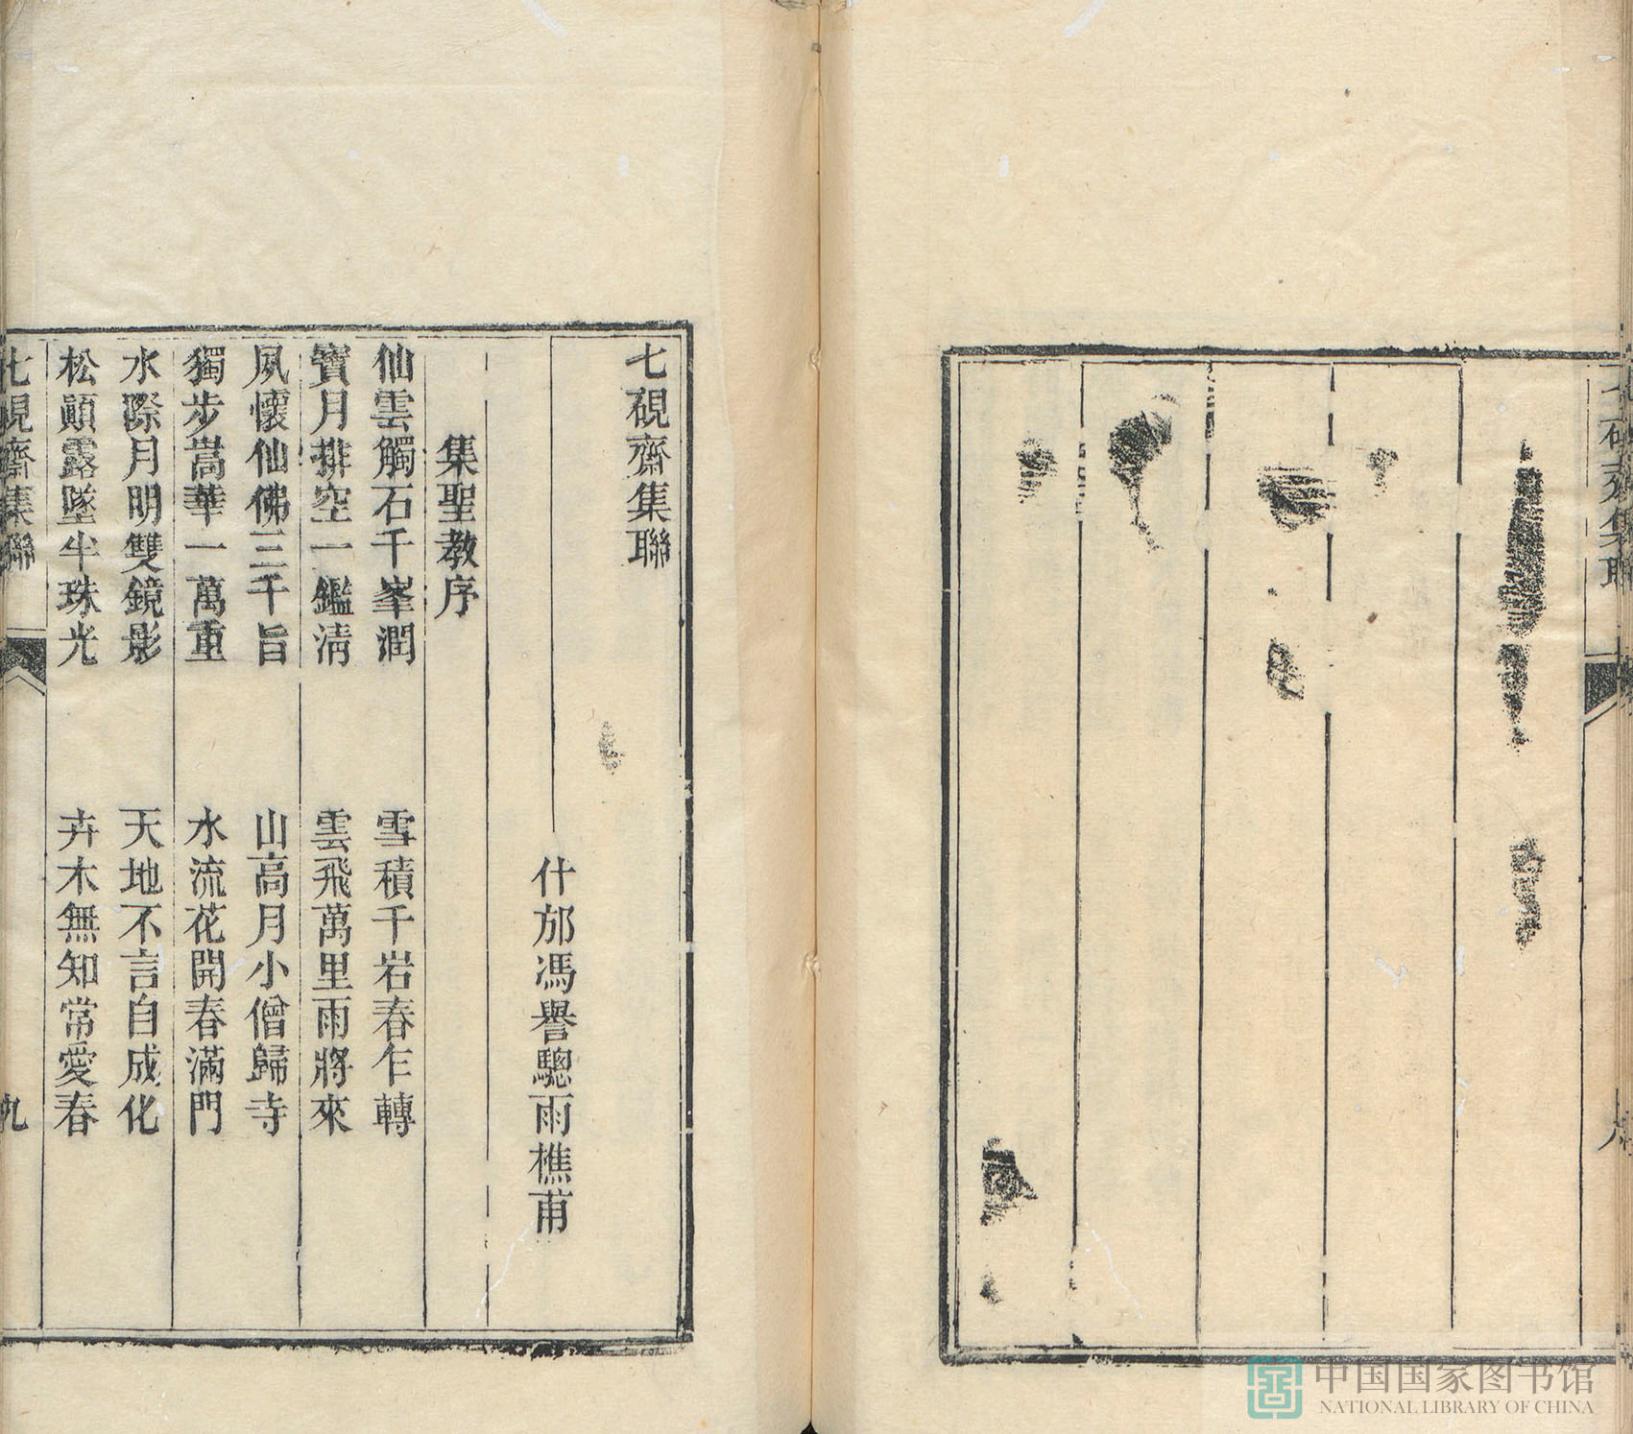 七硯齋集聯
七硯齋集聯
什邡馮譽驄雨樵甫
集聖教序
仙雲觸石千峯潤　雪積千岩春乍轉
寶月排空一鑑清　雲飛萬里雨將來
夙懷仙佛三千旨　山高月小僧歸寺
獨步嵩華一萬重　水流花開春滿門
水際月明雙鏡影　天地不言自成化
松顚露墜半珠光　卉木無知常愛春
七硯齋集聯　九
中国国家图书馆
NATIONAL LIBRARY OF CHINA